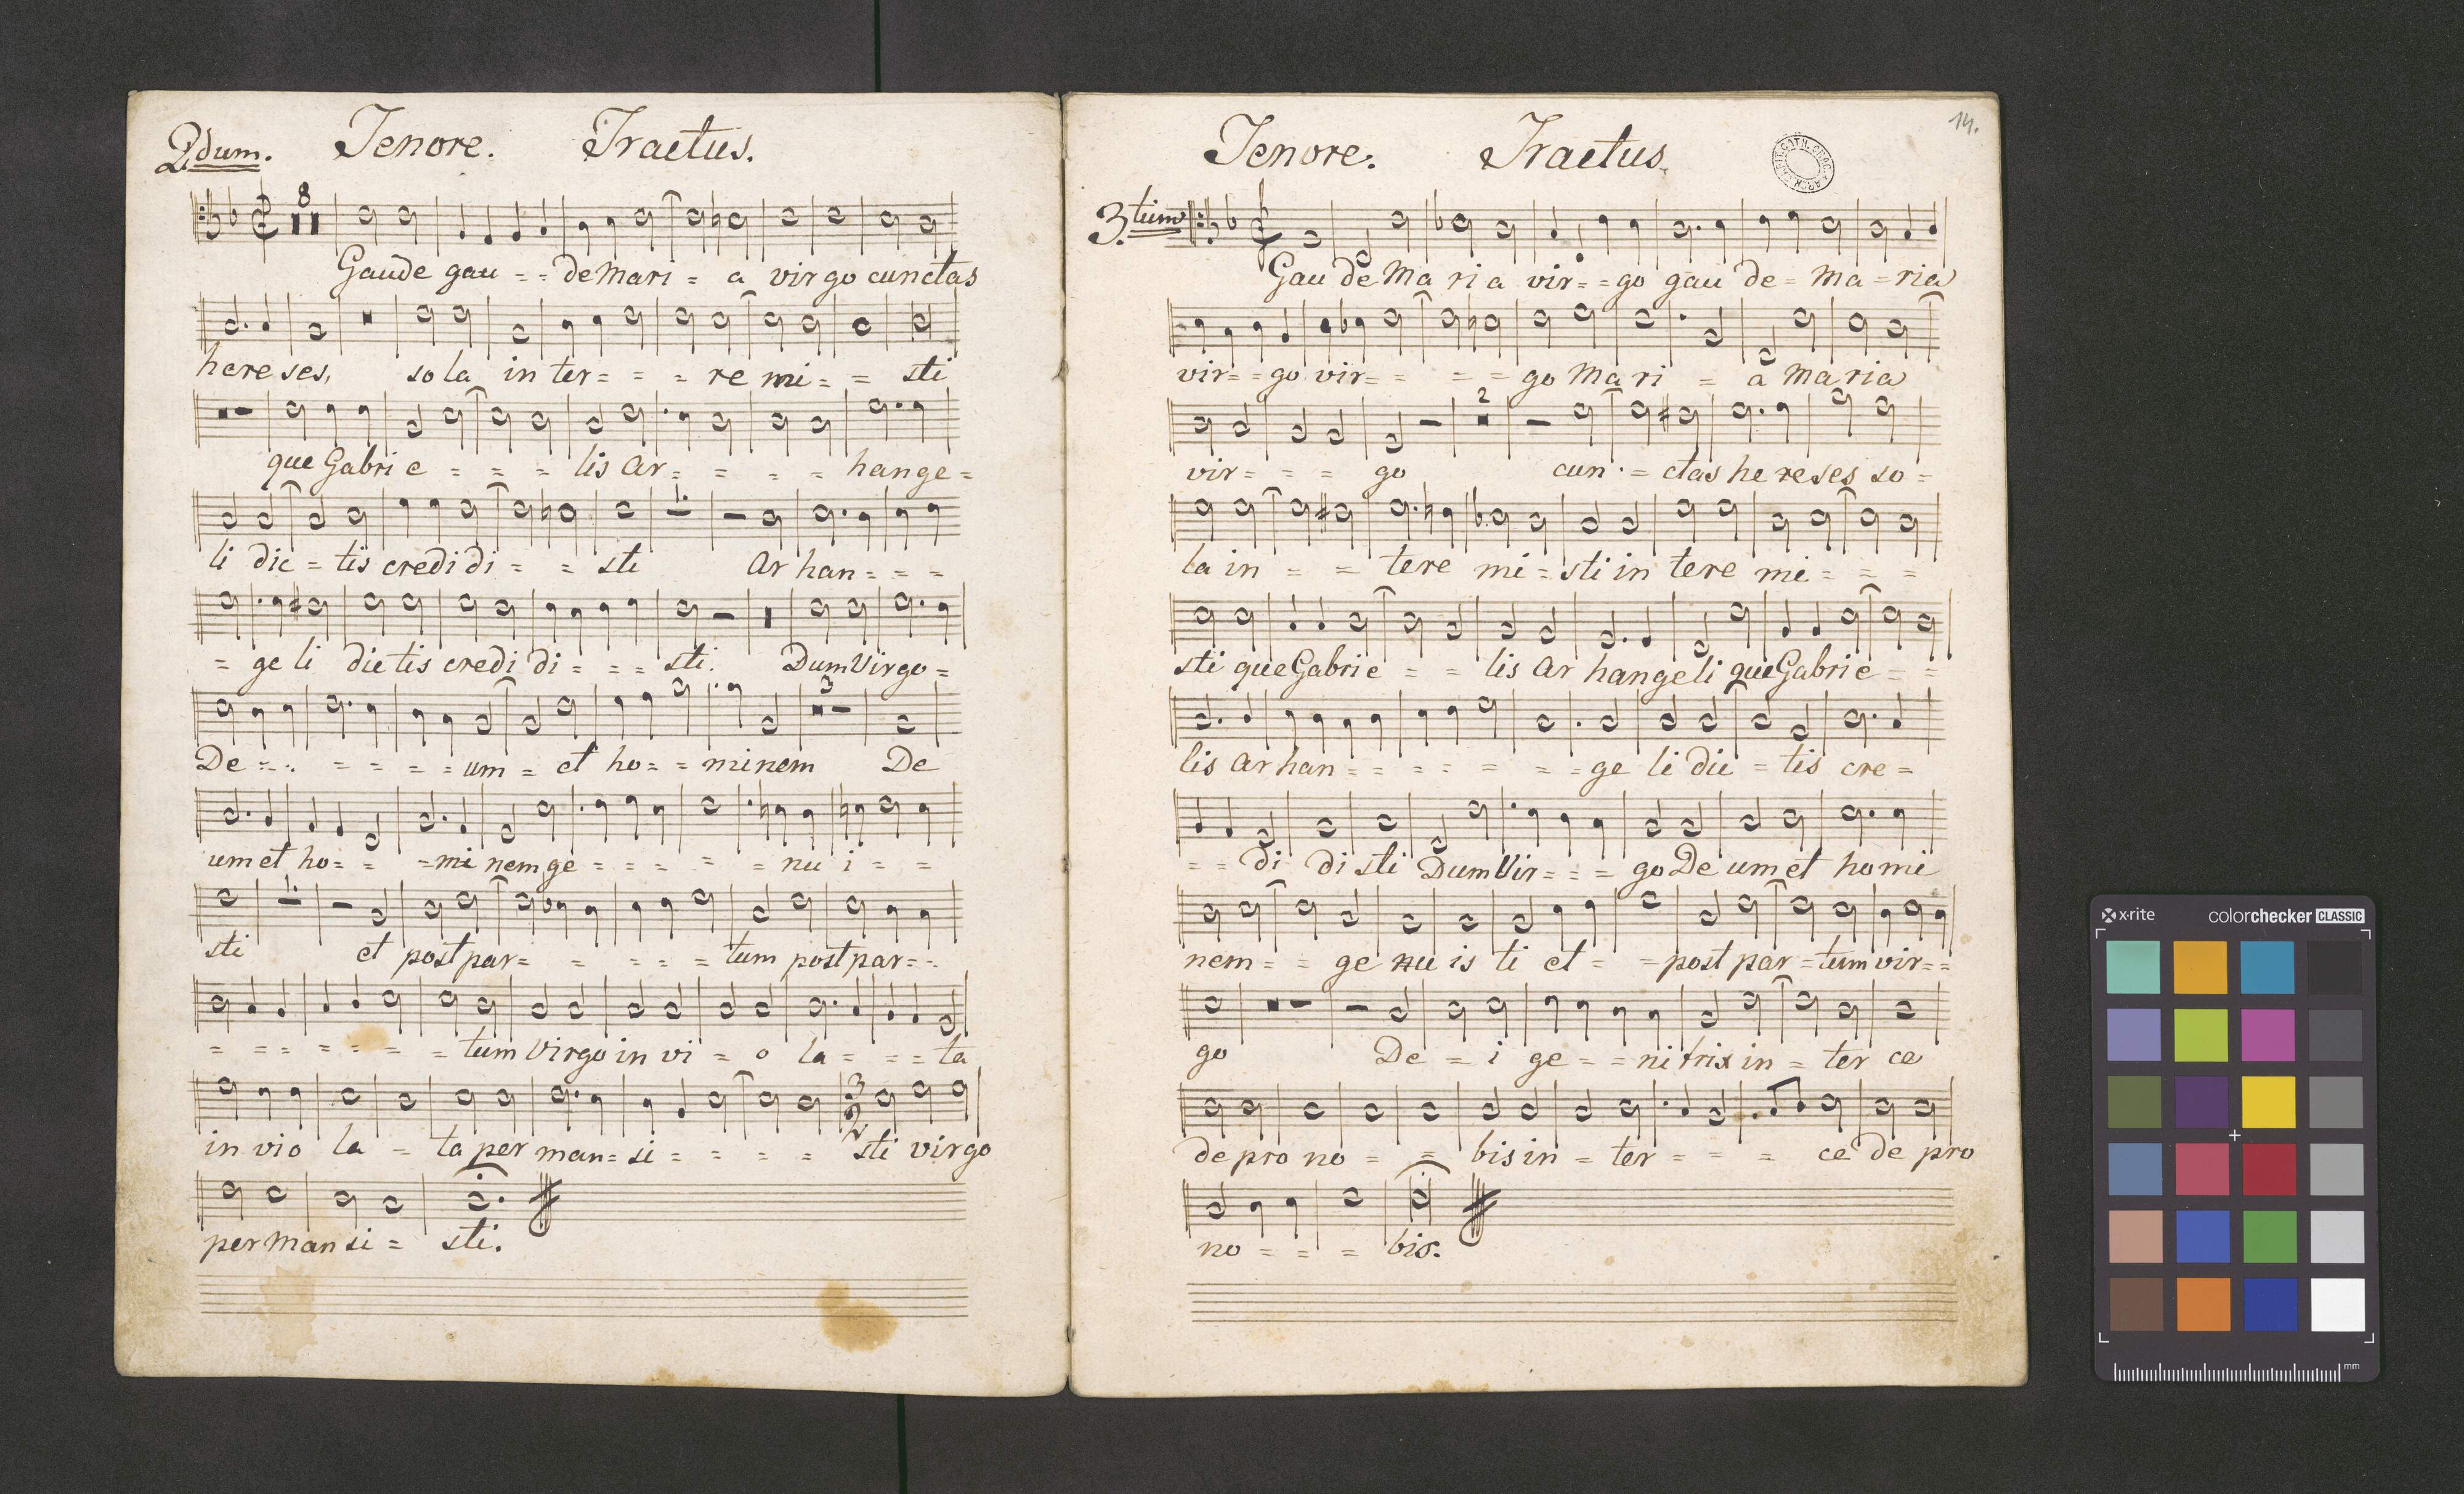 2dum. Tenore. Tractus.
8
Gaude gau = = de Mari = a virgo cunctas
hereses, sola in ter = = = re mi = = sti
que Gabri e = = = lis Ar = = = = hange =
li dic = tis credi di = = sti Ar han = = =
= ge li dictis credi di = = = sti. Dum Virgo =
3
De = = = = = = um = et ho = = minem De
um et ho = = = mi nem ge = = = = = nu i = =
sti et post par = = = = = tum post par = =
= = = = = = = tum Virgo in vi = o la = = = ta
3
2
in vio la = ta per man = si = = = = sti virgo
per Man si = sti.
14.
Tenore. Tractus.
3.tium
Gau de Ma ri a vir = = go gau de = Ma = ria
vir = = go vir = = = = go Ma ri = a Ma ria
2
vir = = = go cun = ctas he reses so =
la in = = tere mi = sti in tere mi = = =
sti que Gabri e = = lis Ar hangeli que Gabri e = =
lis Ar han = = = = = = = ge li dic = tis cre =
= = di di sti Dum Vir = = = go De um et homi
nem = = ge nu is ti et = = post par = tum vir = =
go De = i ge = = ni trix in = ter ce
de pro no = = bis in = ter = = = ce de pro
no = = = bis.
x·rite colorchecker CLASSIC
mm